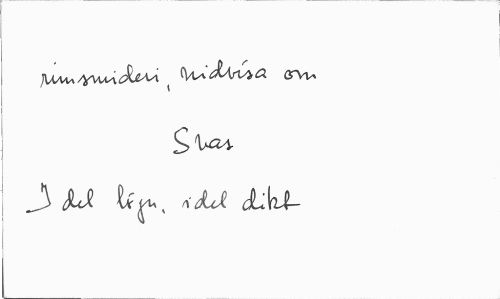 rimsmideri, nidvísa om
Svas
Idel lögn, idel dikt